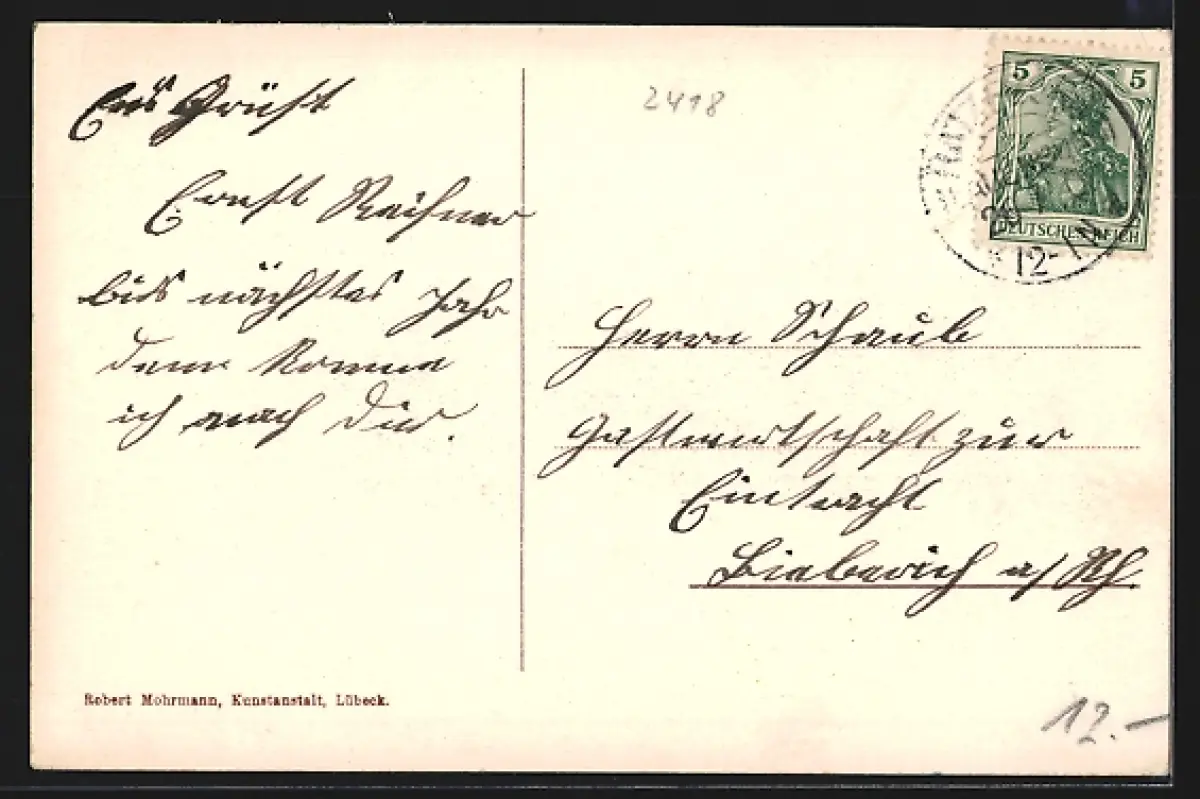 Grüßt
Ernst
bis nächstes Jahr
dann komme
ich nach Dir.
2418
5 5
DEUTSCHES REICH
12-
Herrn Schaub
Gastwirtschaft zur
Eintracht
Bieberich a/Rh.
Robert Mohrmann, Kunstanstalt, Lübeck.
12.-